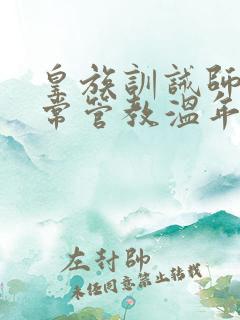 皇族訓誡師
常管教溫年
左封帥
未经同意禁止转载